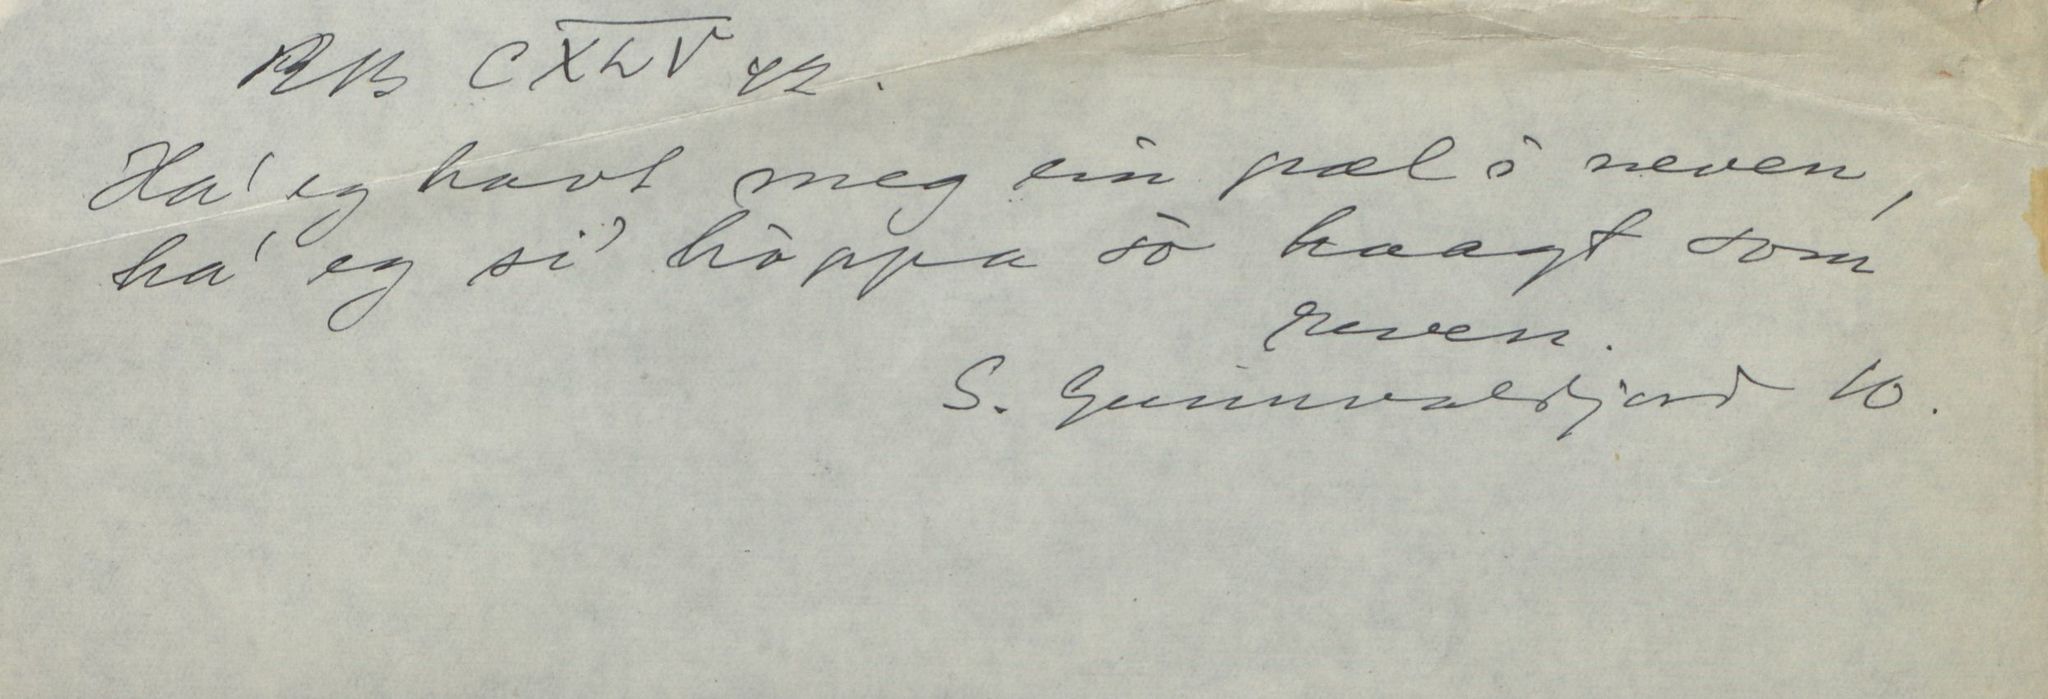 RB CXLV 42.
Ha' eg havt meg ein pæl i neven,
ha' eg si' hòppa sò haagt som
reven.
S. Gunnvaldjord 10.